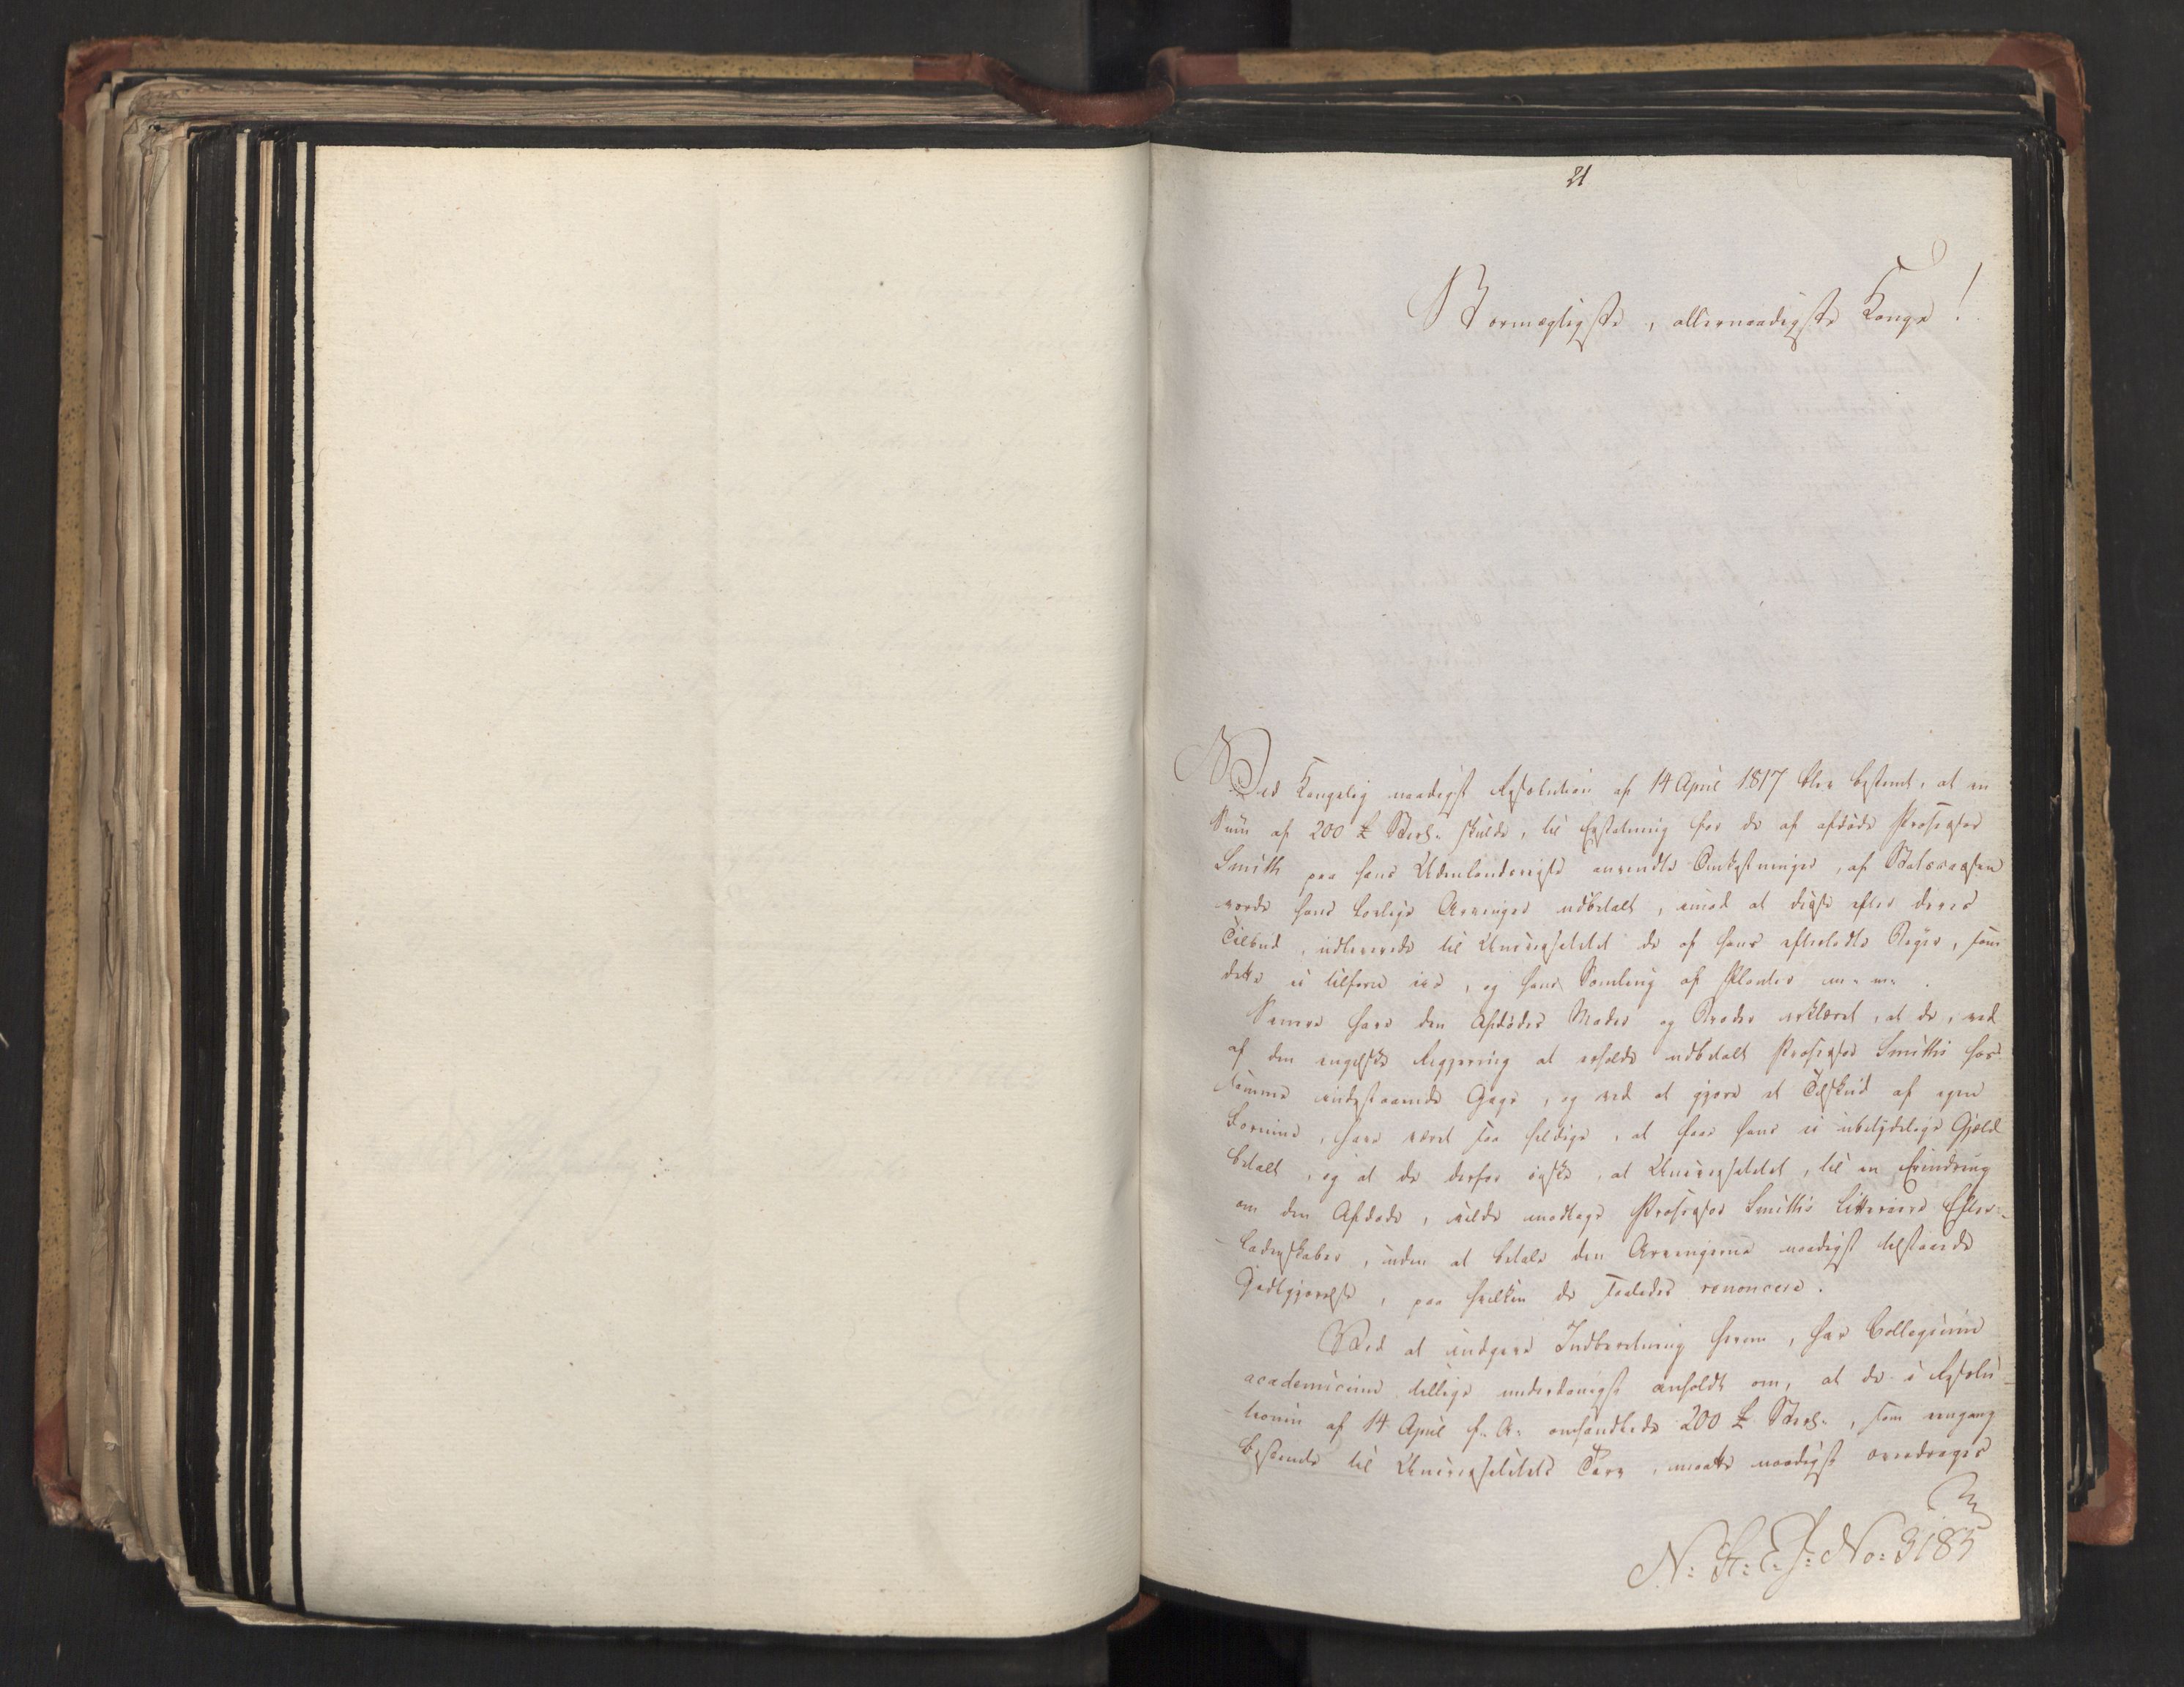 21
Stormægtigste, allernaadigste Konge!
Ved Kongelig naadigst Resolution af 14 April 1817 blev bestemt, at en
Sum af 200 £ Sterl. skulde, til Erstatning for de af afdøde Professor
Smith paa hans Udenlandsreise anvendte Omkostninger, af Statscassen
vorde hans lovlige Arvinger udbetalt, imod at disse efter deres
Tilbud, udleverede til Universitetet de af hans efterladte Bøger, som
dette ei tilforn eier, og hans Samling af Planter m. m.
Senere have den Afdødes Moder og Broder erklæret, at de, ved
af den engelske Regjering at erholde udbetalt Professor Smiths for-
temme indestaaende Gage, og ved at gjøre et Tilskud af egen
Formue, have været saa heldige, at faae hans ei ubetydelige Gjæld
betalt, og at de derfor ønske, at Universitetet, til en Erindring
om den Afdøde, vilde modtage Professor Smiths litteraire Efter-
-ladenskaber, uden at betale den Arvingerne naadigst tilstaaede
Godtgjørelse, paa hvilken de saaledes renoncere.
Ved at indgive Indberetning herom, har Collegium
academicum tillige underdanigst anholdt om, at de i Resolu-
-tionen af 14 April f. A. omhandlede 200 £ Sterl., som engang
bestemte til Universitetets Tarv, maatte naadigst overdrages
N: St: E. J: No: 3183